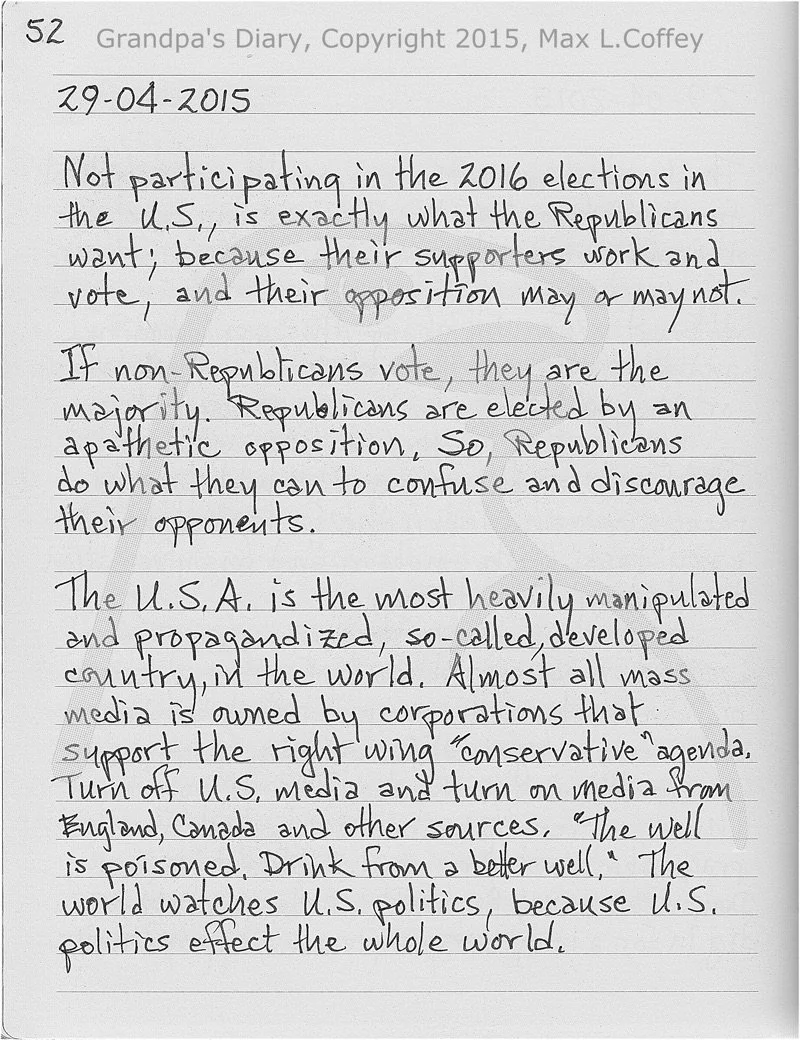 52
Grandpa's Diary, Copyright 2015, Max L.Coffey
29-04-2015
Not participating in the 2016 elections in
the U.S., is exactly what the Republicans
want; because their supporters work and
vote, and their opposition may or may not.
If non-Republicans vote, they are the
majority. Republicans are elected by an
apathetic opposition. So, Republicans
do what they can to confuse and discourage
their opponents.
The U.S.A. is the most heavily manipulated
and propagandized, so-called, developed
country, in the world. Almost all mass
media is owned by corporations that
support the right wing "conservative" agenda.
Turn off U.S. media and turn on media from
England, Canada and other sources. "The well
is poisoned. Drink from a better well." The
world watches U.S. politics, because U.S.
politics effect the whole world.